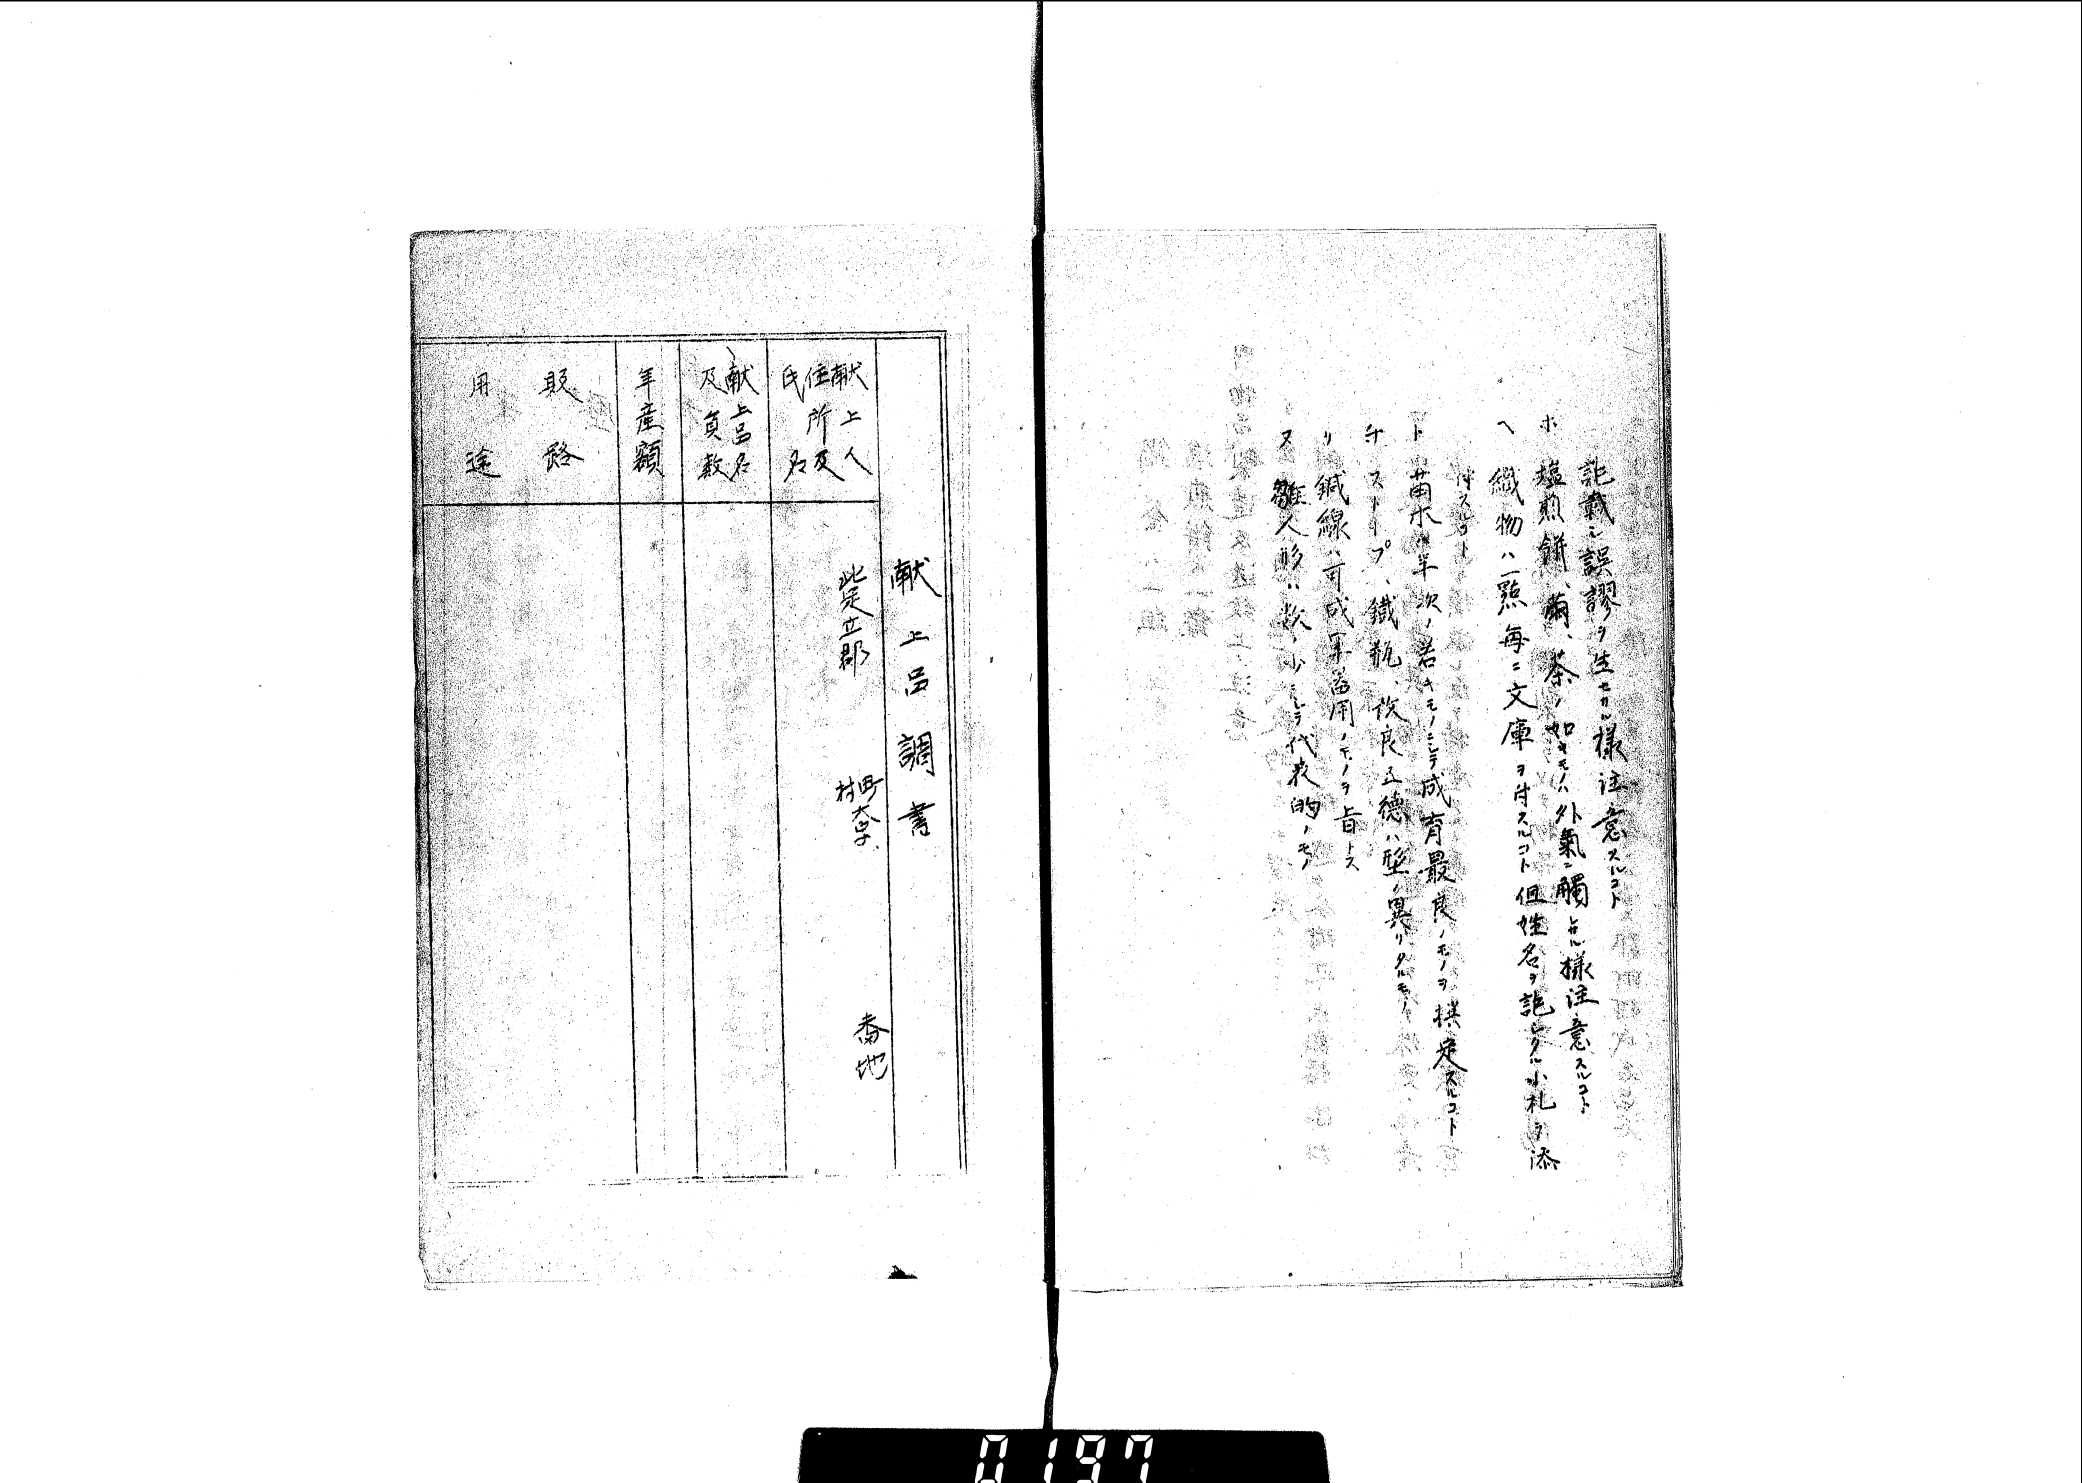 記載ニ誤謬ヲ生セサル樣注意スルコト
ホ 塩煎餅、繭、茶ノ如キモノハ外氣ニ觸レサル樣注意スルコト
ヘ 織物ハ一點每ニ文庫ヲ付スルコト但姓名ヲ記シタル小札ヲ添
付スルコト
ト 苗木ハ年次ノ若キモノニシテ成育最良ノモノヲ撰定スルコト
チ ストーブ、鐵瓶、改良五德ハ型ノ異リタルモノ
リ 鍼線ハ可成軍當用ノモノヲ旨トス
ヌ 雛人形ハ数ノ少ニシテ代表的ノモノ
献上品調書
献上人
住所及
氏名
北足立郡 町村大字 番地
献上品名
及員数
年産額
販路
用途
0197